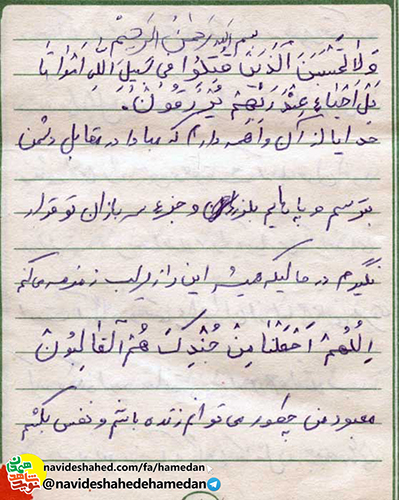 بسم الله الرحمن الرحیم
وَلا تَحْسَبَنَ اَلَّذینَ قُتِلُوا فی سَبیلِ اللهِ اَمْواتا
بَلْ اَحْیاءُ عِنْدَ رَبِّهِمْ یُرْزَقُونْ.
خدایا از آن واهمه دارم که مبادا در مقابل دشمن
بترسم و پاهایم بلرزد و جزء سربازان تو قرار
نگیرم در حالیکه همیشه این راز زیر لب زمزمه می‌کنم
اِللّهُمَّ اجْعَلْنا مِنْ جُنْدِکَ هُمْ اَلْغالِبُونْ
معبود من چطور می‌توانم زنده باشم و نفس بکشم
navideshahed.com/fa/hamedan
@navideshahedehamedan